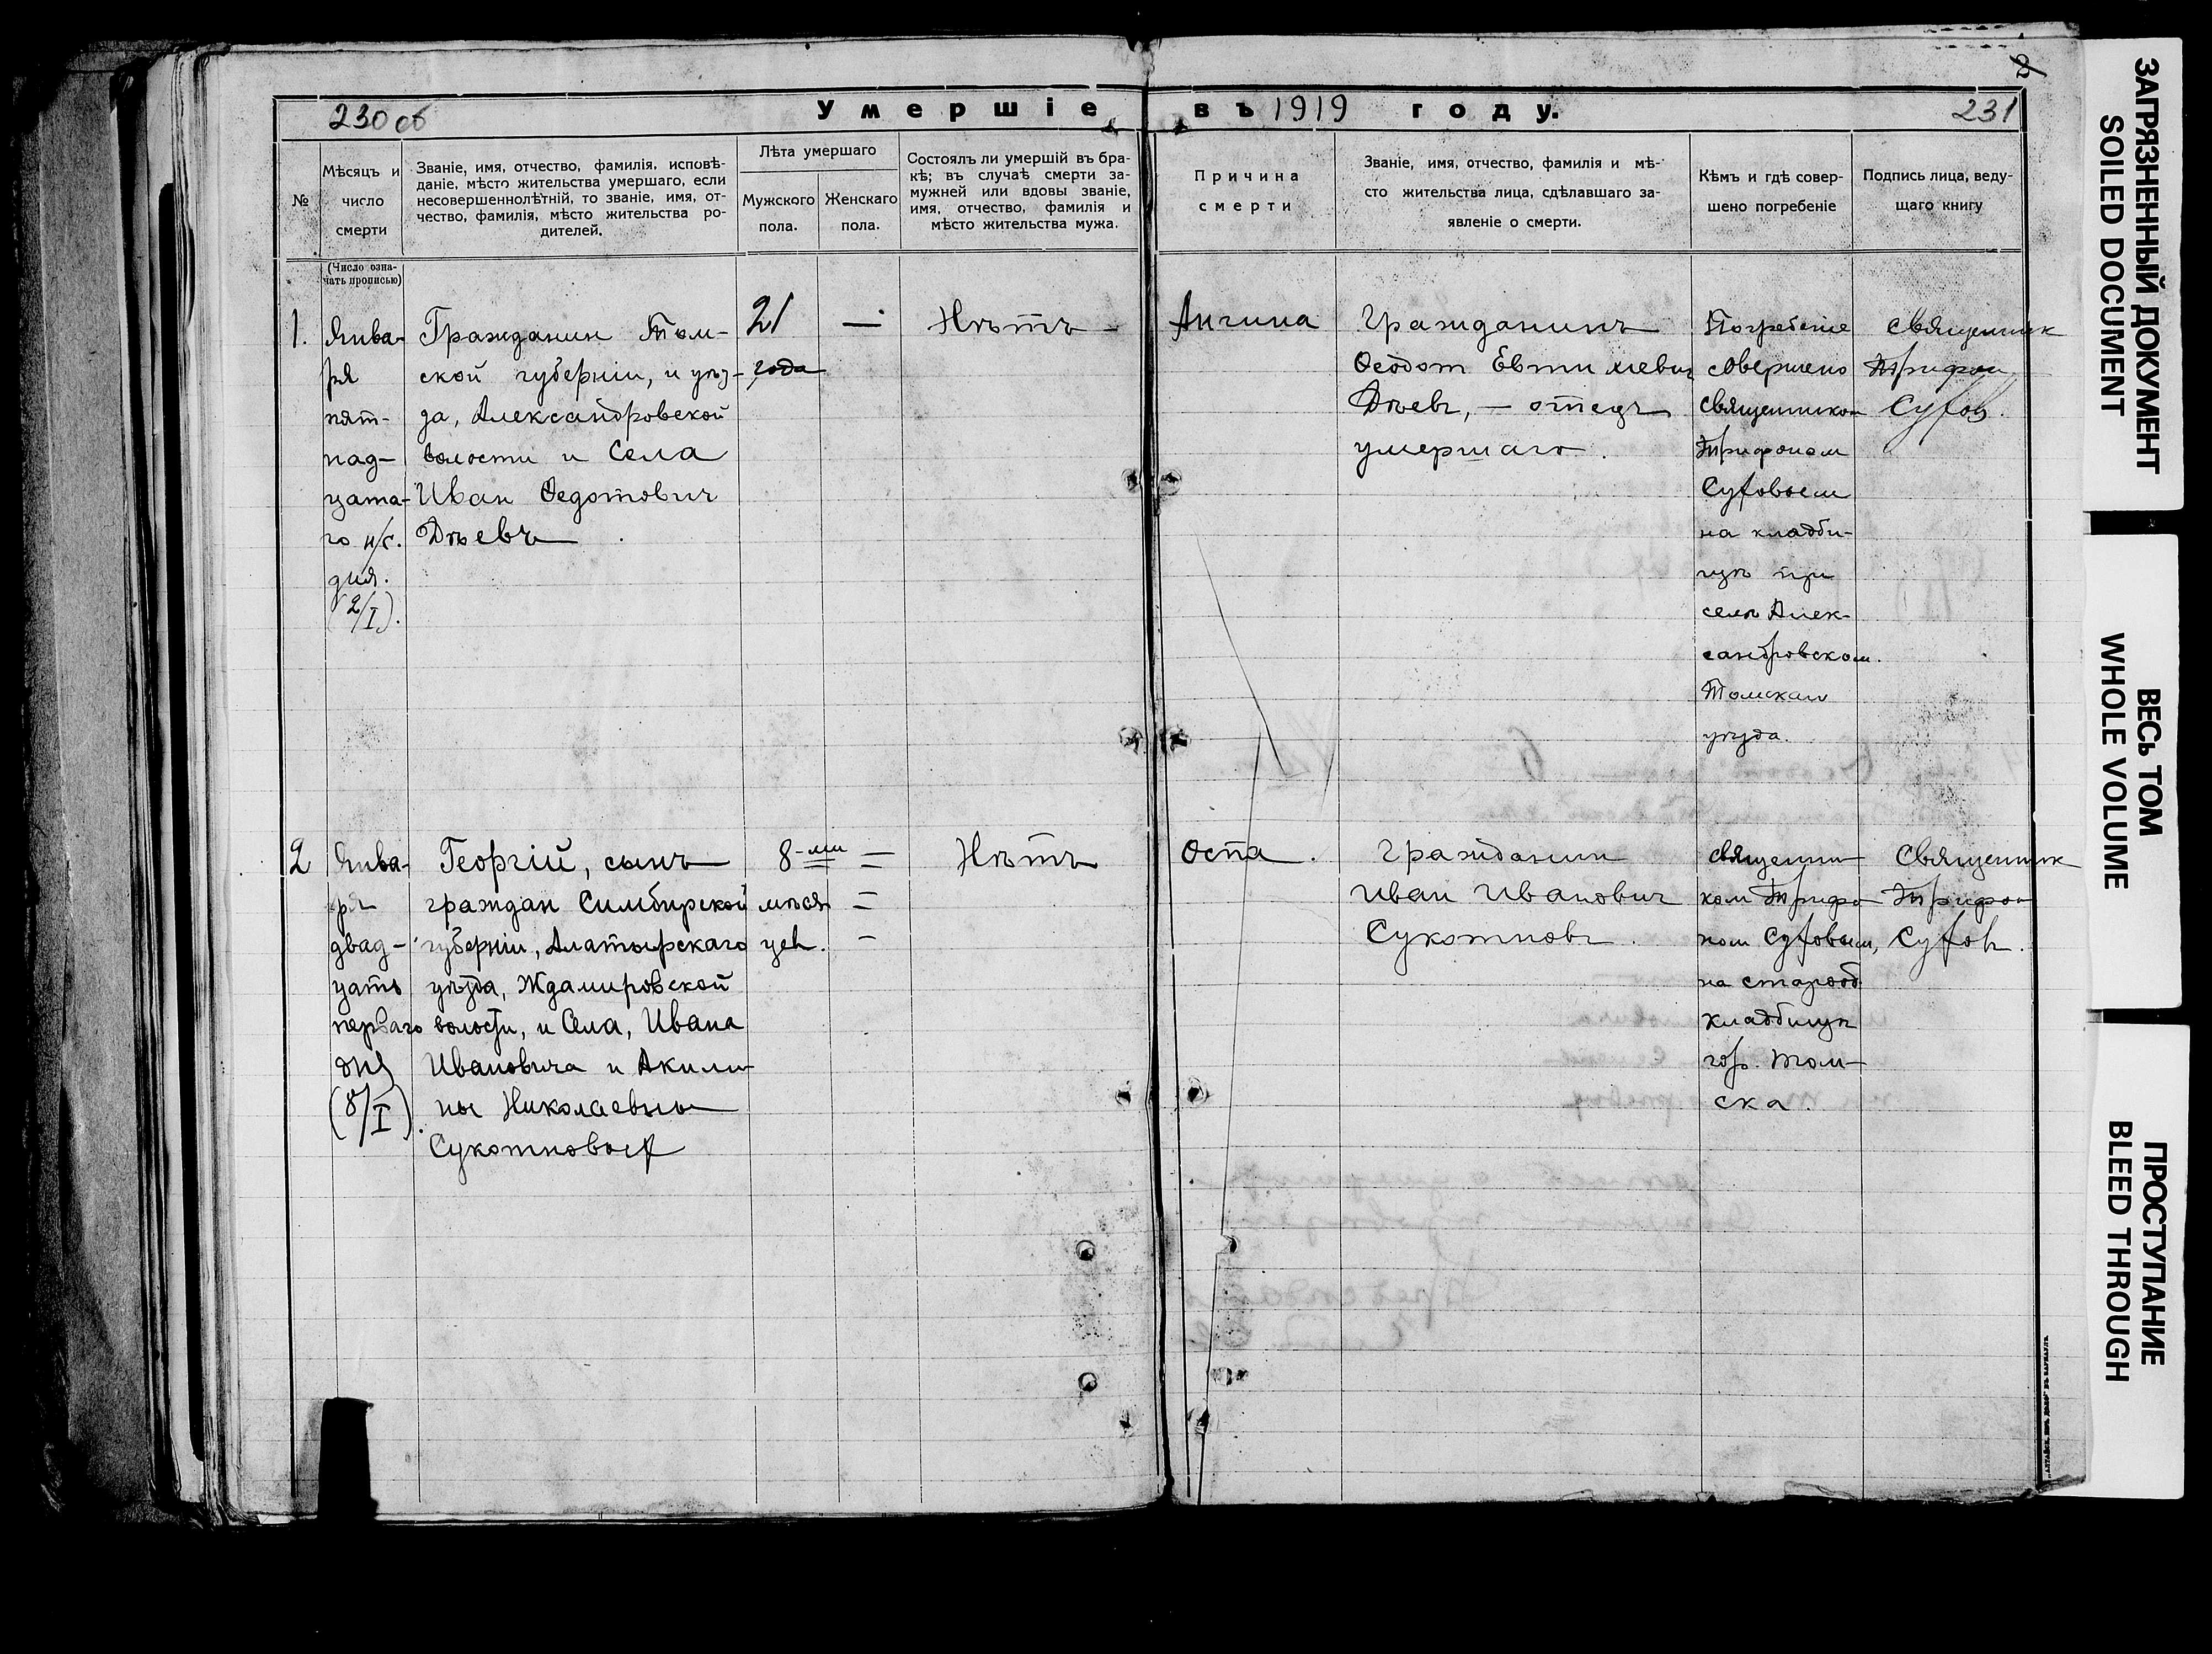 230 об
Умершіе въ 1919 году.
231
№
Мѣсяцъ и
число
смерти
Званіе, имя, отчество, фамилія, исповѣ-
даніе, мѣсто жительства умершаго, если
несовершеннолѣтній, то званіе, имя, от-
чество, фамилія, мѣсто жительства ро-
дителей.
Лѣта умершаго
Мужского
пола.
Женскаго
пола.
Состоялъ ли умершій въ бра-
кѣ; въ случаѣ смерти за-
мужней или вдовы званіе,
имя, отчество, фамилія и
мѣсто жительства мужа.
Причина
смерти
Званіе, имя, отчество, фамилія и мѣ-
сто жительства лица, сдѣлавшаго за-
явленіе о смерти.
Кѣмъ и гдѣ совер-
шено погребеніе
Подпись лица, веду-
щаго книгу
(Число озна-
чать прописью)
1.
Янва-
ря
пят-
над-
цата-
го н/с.
дня.
(2/I).
Гражданин Том-
ской губерніи, и уѣз-
да, Александровской
волости и Села
Иван Ѳедотовичъ
Дѣевъ
21
года
—
Нѣтъ
Ангина
Гражданинъ
Ѳеодот Евтихіевич
Дѣевъ, — отецъ
умершаго.
Погребеніе
совершено
священником
Трифоном
на кладби-
щѣ при
селѣ Алек-
сандровском.
Томскаго
уѣзда.
Священник
Трифон
2
Янва-
ря
двад-
цать
перваго
дня
(8/I).
Георгій, сынъ
граждан Симбирской
губерніи, Алатырскаго
уѣзда, Ждамировской
волости, и Села, Ивана
Ивановича и Акили-
ны Николаевны
Сукотновых
8-ми
мѣся
цев.
Нѣтъ
Оспа.
Гражданин
Иван Иванович
Сукотновъ.
Священни-
ком Трифо-
ном
на старооб.
кладбищѣ
гор. Том-
ска.
Священник
Трифон
ЗАГРЯЗНЕННЫЙ ДОКУМЕНТ
SOILED DOCUMENT
ВЕСЬ ТОМ
WHOLE VOLUME
ПРОСТУПАНИЕ
BLEED THROUGH